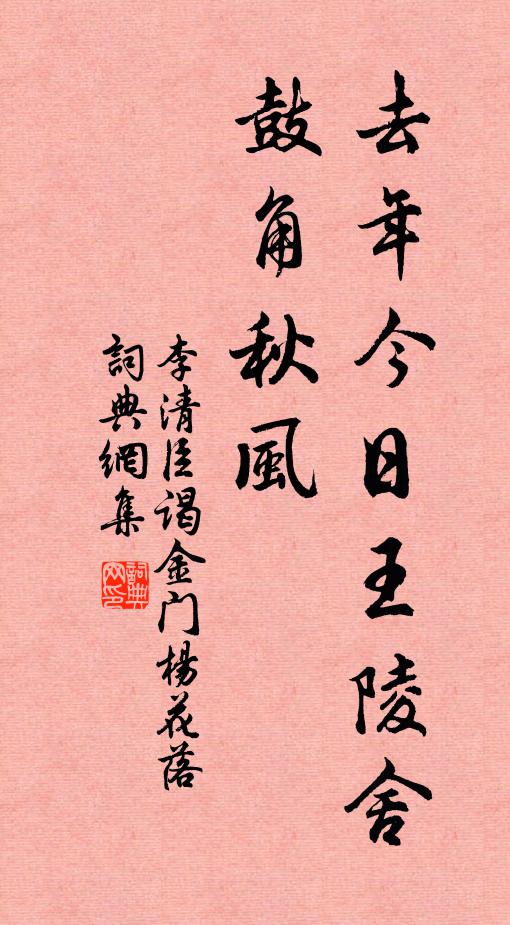 去年今日王陵舍
鼓角秋風
李清臣谒金门楊花落
詞典網集
詞典网印